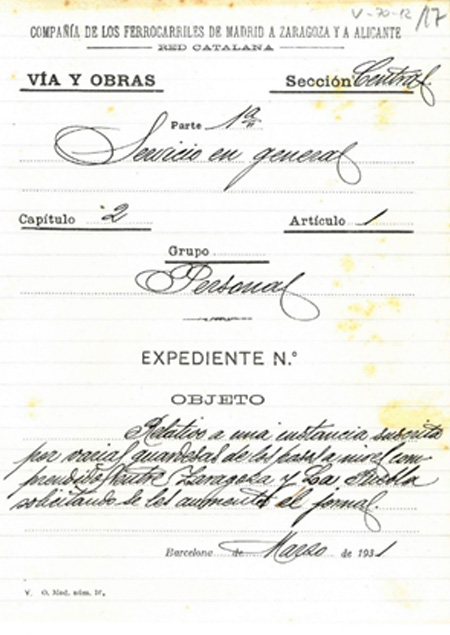 V-70-12/17
COMPAÑÍA DE LOS FERROCARRILES DE MADRID A ZARAGOZA Y A ALICANTE
RED CATALANA
VÍA Y OBRAS Sección Central
Parte 1ª
Servicio en general
Capítulo 2 Artículo 1
Grupo
Personal
EXPEDIENTE N.º
OBJETO
Relativo a una instancia suscrita
por varias guardesas de los pasos a nivel com-
prendidos entre Zaragoza y La Puebla
solicitando se les aumente el jornal.
Barcelona de Marzo de 1931
V. O. Mod. núm.